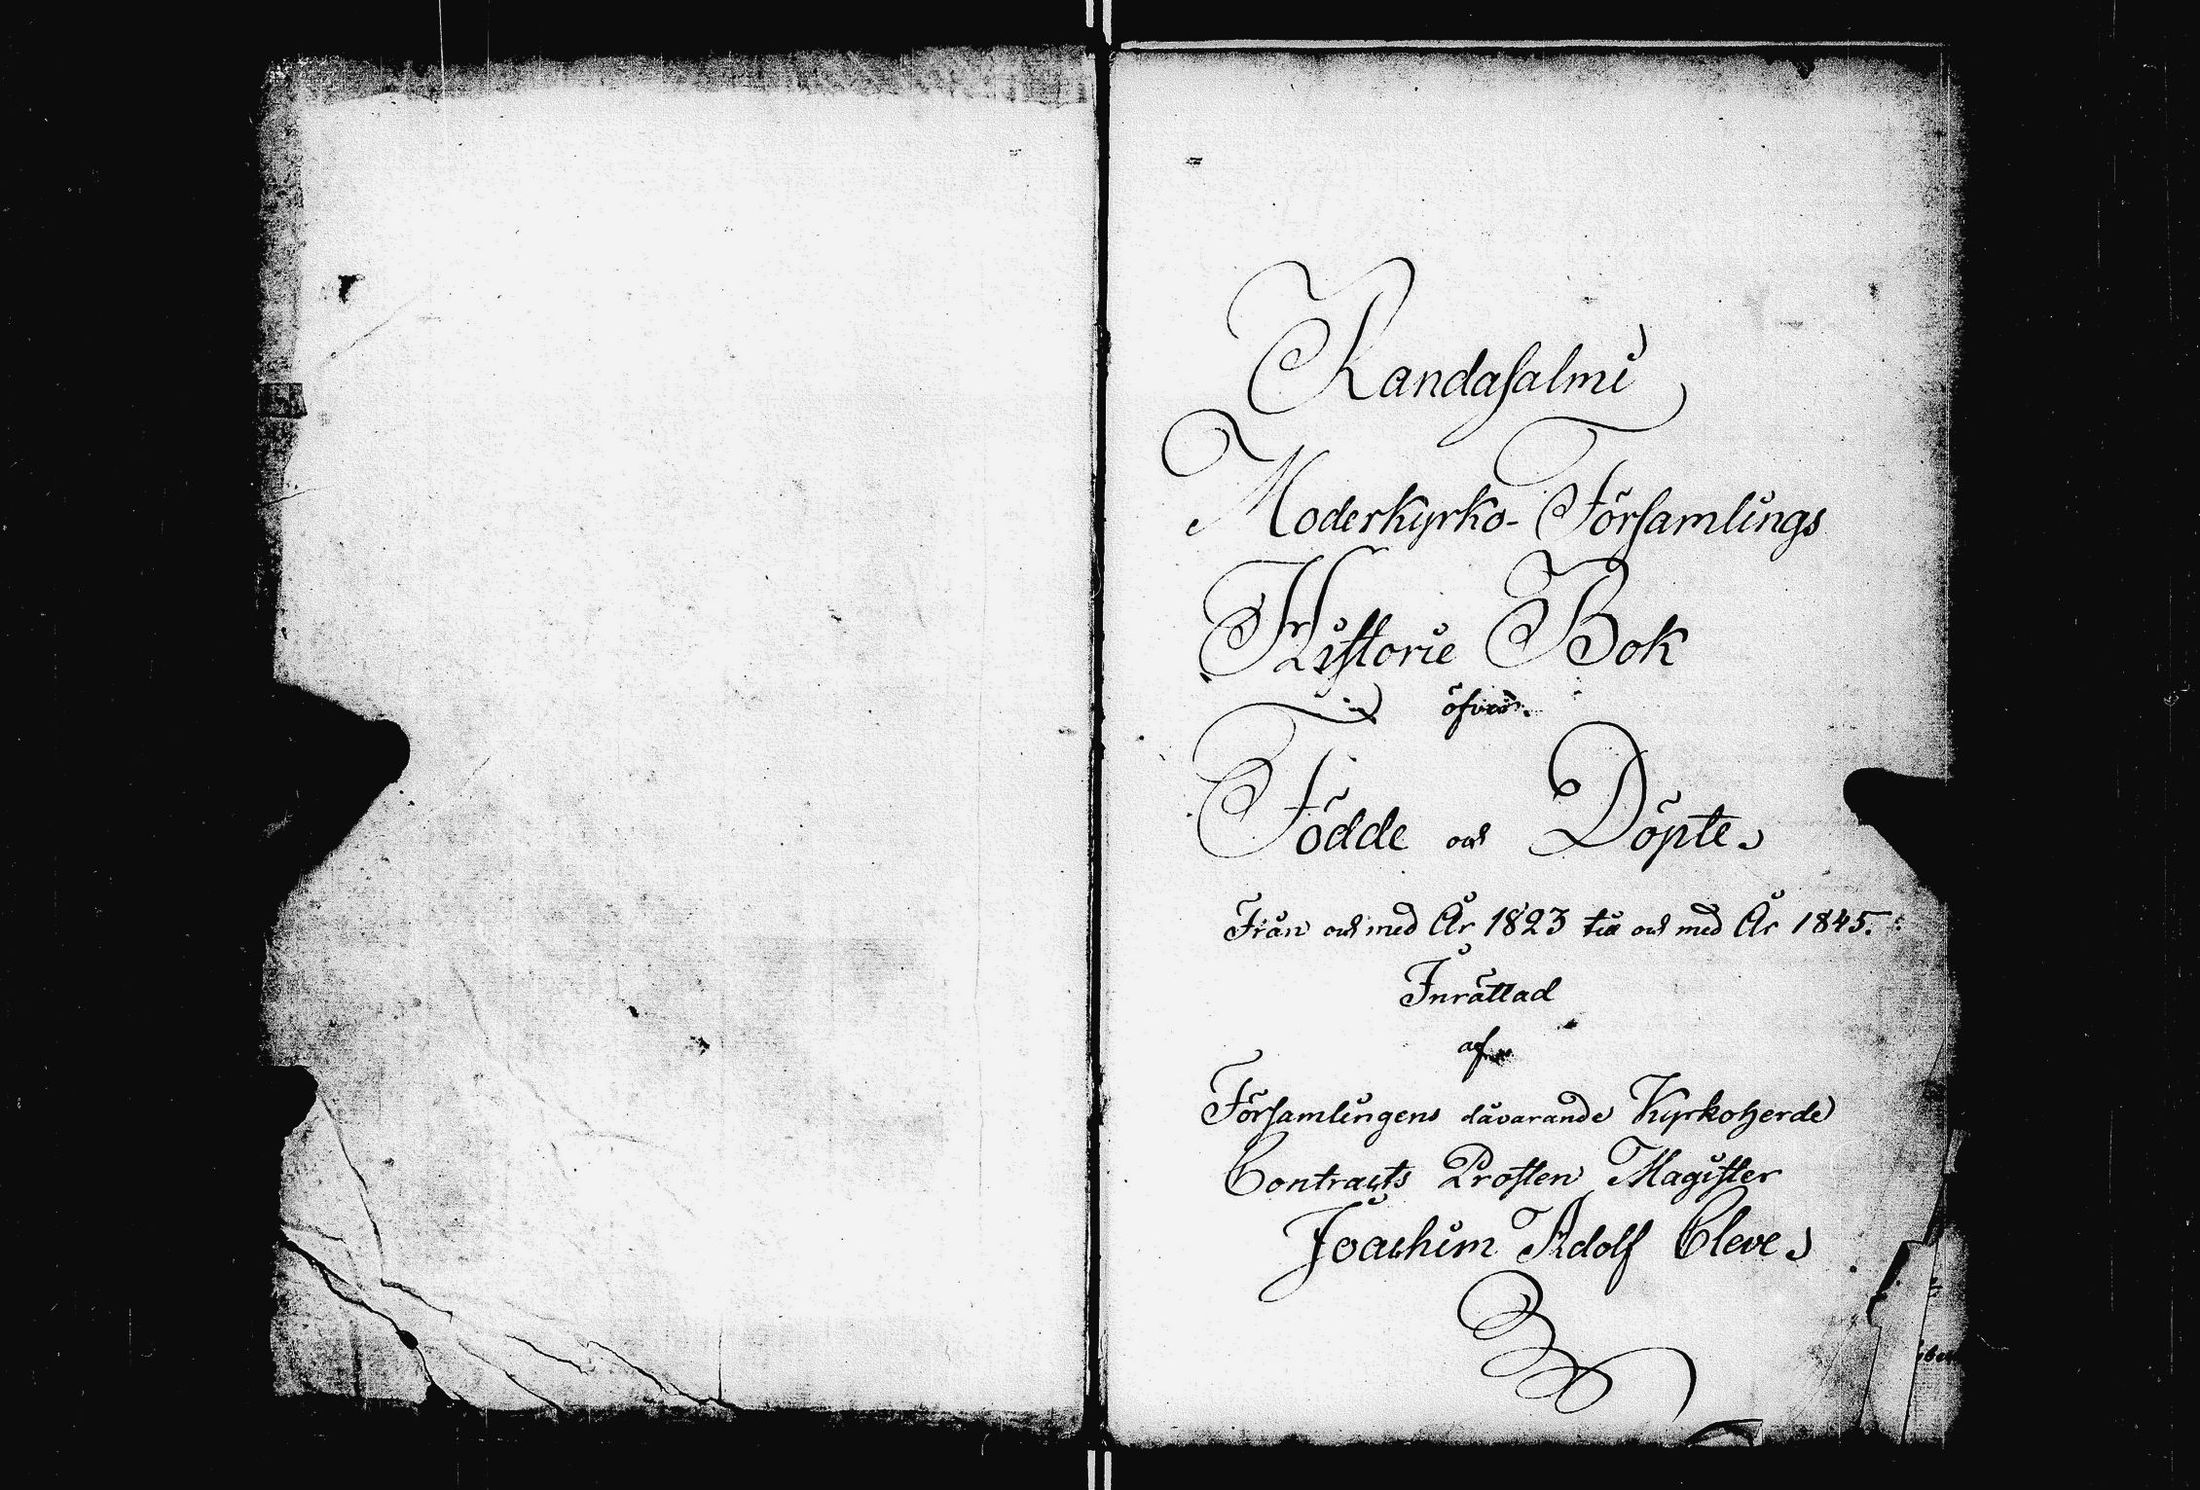 Randasalmi
Moderkyrko-Församlings
Historie Bok
öfver
Födde och Döpte
Från och med År 1823 till och med År 1845.
Inrättad
af
Församlingens dåvarande Kyrkoherde
Contracts Prosten Magister
Joachim Adolf Cleve